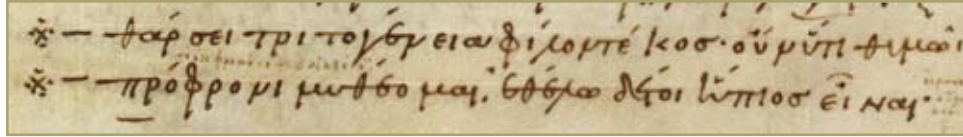 ※ — θάρσει τριτογένεια φίλον τέκος· οὔ νύ τι θυμῶι
※ — πρόφρονι μυθέομαι. ἐθέλω δέ τοι ἤπιος εἶναι·